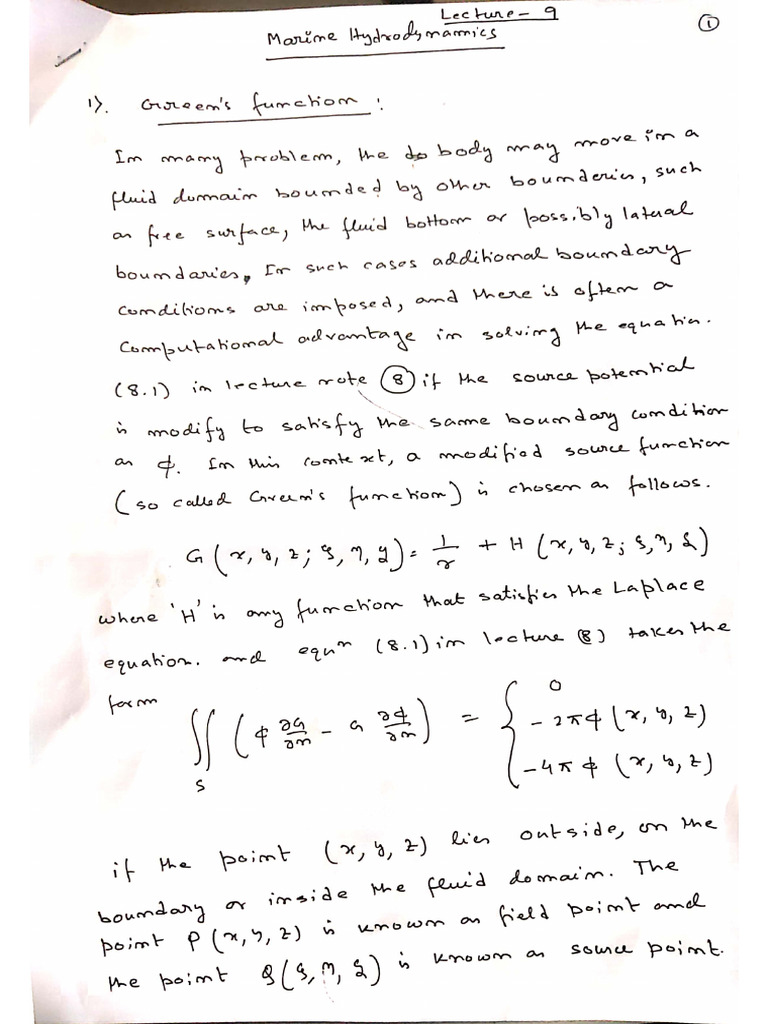 Lecture - 9
①
Marine Hydrodynamics
1). Green's function :
In many problem, the body may move in a
fluid domain bounded by other bounderies, such
as free surface, the fluid bottom or possibly lateral
boundaries, In such cases additional boundary
conditions are imposed, and there is often a
computational advantage in solving the equation.
(8.1) in lecture note ⑧ if the source potential
is modify to satisfy the same boundary condition
as ϕ. In this context, a modified source function
(so called Green's function) is chosen as follows.
G (x, y, z; ξ, η, ζ) = 1/r + H (x, y, z; ξ, η, ζ)
where 'H' is any function that satisfies the Laplace
equation. and equⁿ (8.1) in lecture (8) takes the
form
∬_S (ϕ ∂G/∂n - G ∂ϕ/∂n) = { 0
- 2πϕ (x, y, z)
- 4πϕ (x, y, z)
if the point (x, y, z) lies outside, on the
boundary or inside the fluid domain. The
point P (x, y, z) is known as field point and
the point Q (ξ, η, ζ) is known as source point.